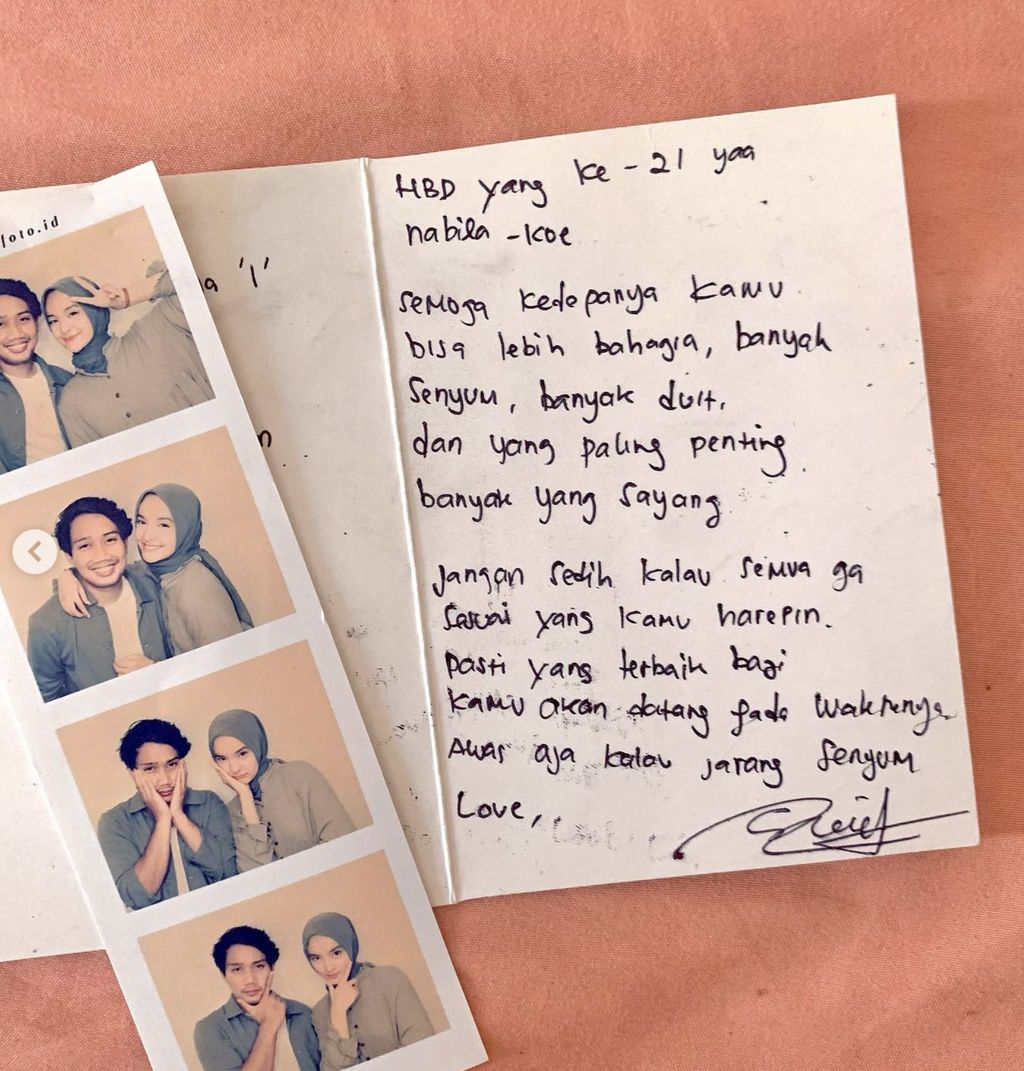 foto.id
a '1'
n
HBD yang ke - 21 yaa
nabila - koe
semoga kedepanya kamu
bisa lebih bahagia, banyak
senyum, banyak duit,
dan yang paling penting
banyak yang sayang
Jangan sedih kalau semua ga
sesuai yang kamu harepin.
pasti yang terbaik bagi
kamu akan datang pada waktunya
Awas aja kalau jarang senyum
Love,